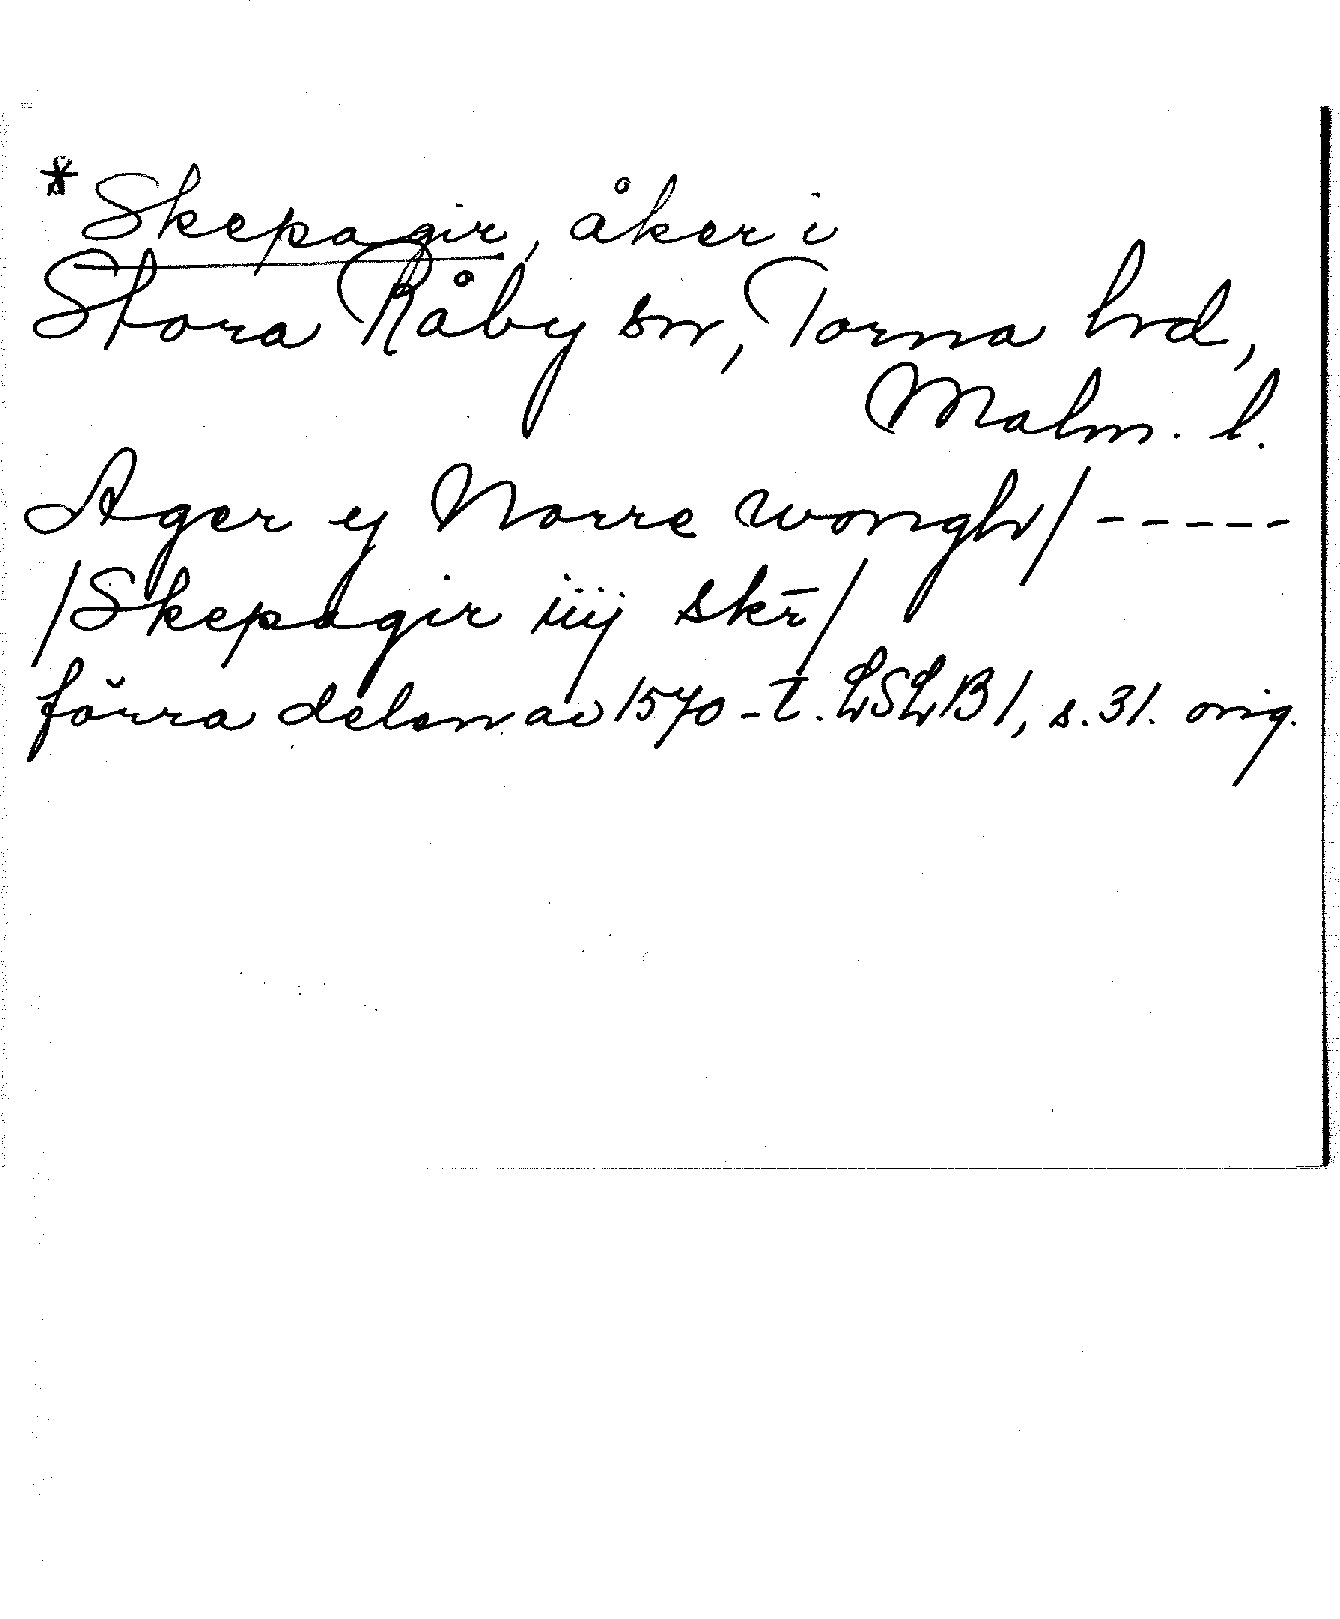 *Skepagir, åker i
Stora Råby sn, Torna hd,
Malm. l.
Ager ej Norre wongh/ -----
/Skepagir iiij skr̄/
förra delen av 1570-t. LSLB1, s.31. orig.